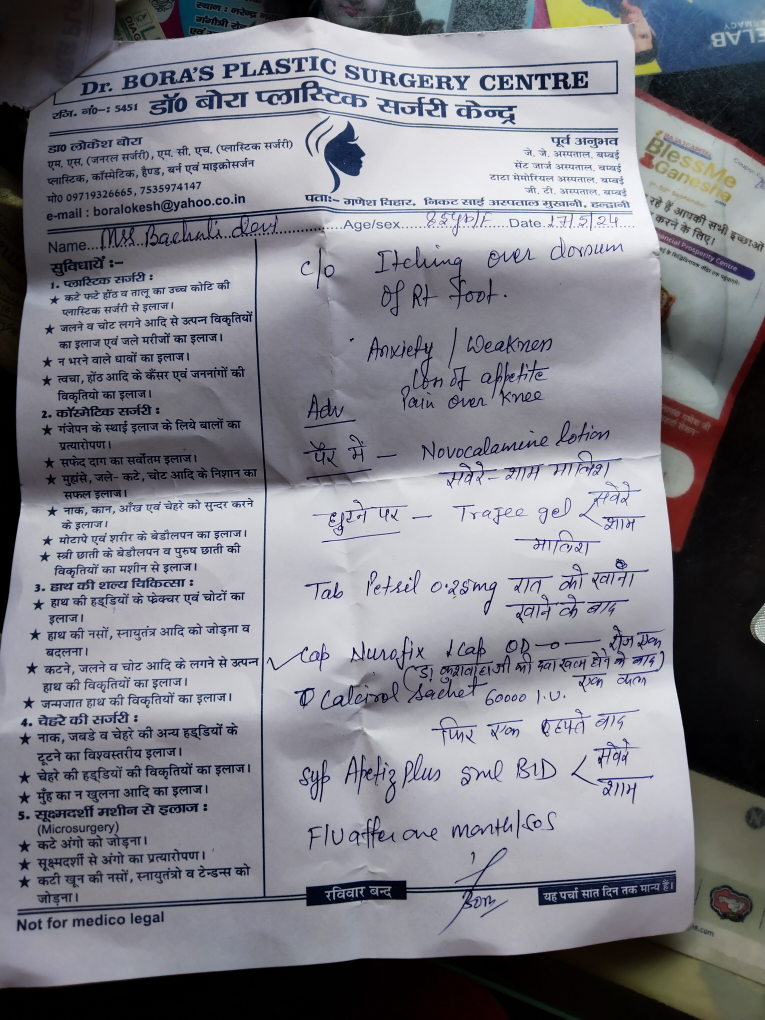 Dr. BORA'S PLASTIC SURGERY CENTRE
रजि. नं०-: 5451 डॉ० बोरा प्लास्टिक सर्जरी केन्द्र
डा० लोकेश बोरा
एम. एस. (जनरल सर्जरी), एम. सी. एच. (प्लास्टिक सर्जरी)
प्लास्टिक, कॉस्मेटिक, हैण्ड, बर्न एवं माइक्रोसर्जन
मो० 09719326665, 7535974147
e-mail : boralokesh@yahoo.co.in
पूर्व अनुभव
जे. जे. अस्पताल, बम्बई
सेंट जार्ज अस्पताल, बम्बई
टाटा मेमोरियल अस्पताल, बम्बई
जी. टी. अस्पताल, बम्बई
पताः- गणेश विहार, निकट साई अस्पताल मुखानी, हल्द्वानी
Name... Mrs Bachuli devi Age/sex 85yr/F Date 17/5/24
सुविधायें :-
1. प्लास्टिक सर्जरी :
★ कटे फटे होंठ व तालू का उच्च कोटि की
प्लास्टिक सर्जरी से इलाज।
★ जलने व चोट लगने आदि से उत्पन्न विकृतियों
का इलाज एवं जले मरीजों का इलाज।
★ न भरने वाले घावों का इलाज।
★ त्वचा, होंठ आदि के कैंसर एवं जननांगों की
विकृतियो का इलाज।
2. कॉस्मेटिक सर्जरी :
★ गंजेपन के स्थाई इलाज के लिये बालों का
प्रत्यारोपण।
★ सफेद दाग का सर्वोतम इलाज।
★ मुहांसे, जले- कटे, चोट आदि के निशान का
सफल इलाज।
★ नाक, कान, आँख एवं चेहरे को सुन्दर करने
के इलाज।
★ मोटापे एवं शरीर के बेडौलपन का इलाज।
★ स्त्री छाती के बेडौलपन व पुरुष छाती की
विकृतियों का मशीन से इलाज।
3. हाथ की शल्य चिकित्सा :
★ हाथ की हड्डियों के फ्रेक्चर एवं चोटों का
इलाज।
★ हाथ की नसों, स्नायुतंत्र आदि को जोड़ना व
बदलना।
★ कटने, जलने व चोट आदि के लगने से उत्पन्न
हाथ की विकृतियों का इलाज।
★ जन्मजात हाथ की विकृतियों का इलाज।
4. चेहरे की सर्जरी :
★ नाक, जबडे व चेहरे की अन्य हड्डियों के
टूटने का विश्वस्तरीय इलाज।
★ चेहरे की हड्डियों की विकृतियों का इलाज।
★ मुँह का न खुलना आदि का इलाज।
5. सूक्ष्मदर्शी मशीन से इलाज :
(Microsurgery)
★ कटे अंगो को जोड़ना।
★ सूक्ष्मदर्शी से अंगो का प्रत्यारोपण।
★ कटी खून की नसों, स्नायुतंत्रो व टेन्डन्स को
जोड़ना।
c/o Itching over dorsum
of Rt foot.
Anxiety / Weakness
loss of appetite
Pain over knee
Adv
पैर में - Novocalamine lotion
सवेरे-शाम मालिश
घुटने पर - Trajee gel < सवेरे
शाम
मालिश
Tab Petsil 0.25mg रात को खाना
खाने के बाद
Cap Nurofix 1 Cap OD -०- रोज एक
(डा कुशवाहा जी की दवा खत्म होने के बाद)
Calcirol sachet 60000 I.U.
फिर एक हफ्ते बाद
Syp Apetiz Plus 5ml BID < सवेरे
शाम
F/U after one month/SOS
Bora
रविवार बन्द
यह पर्चा सात दिन तक मान्य है।
Not for medico legal
BlessMe
Ganesha